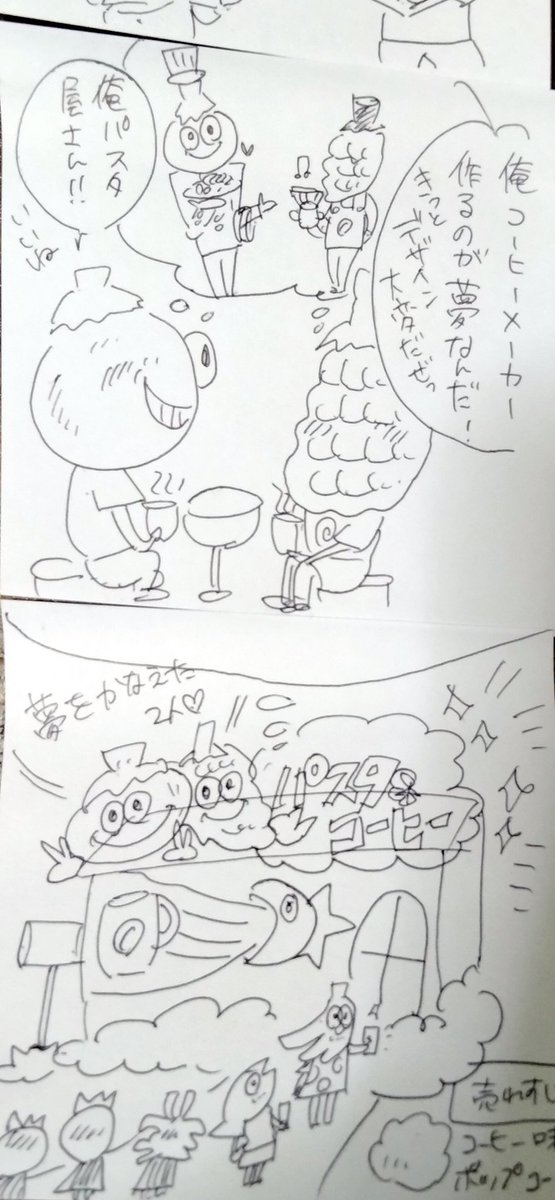 俺コーヒーメーカー
作るのが夢なんだ!
きっとデザイン
大変だぜっ
俺パスタ
屋さん!!
夢をかなえた
2人♡
パスタ&
コーヒー
売れすじ
コーヒー味
ポップコー